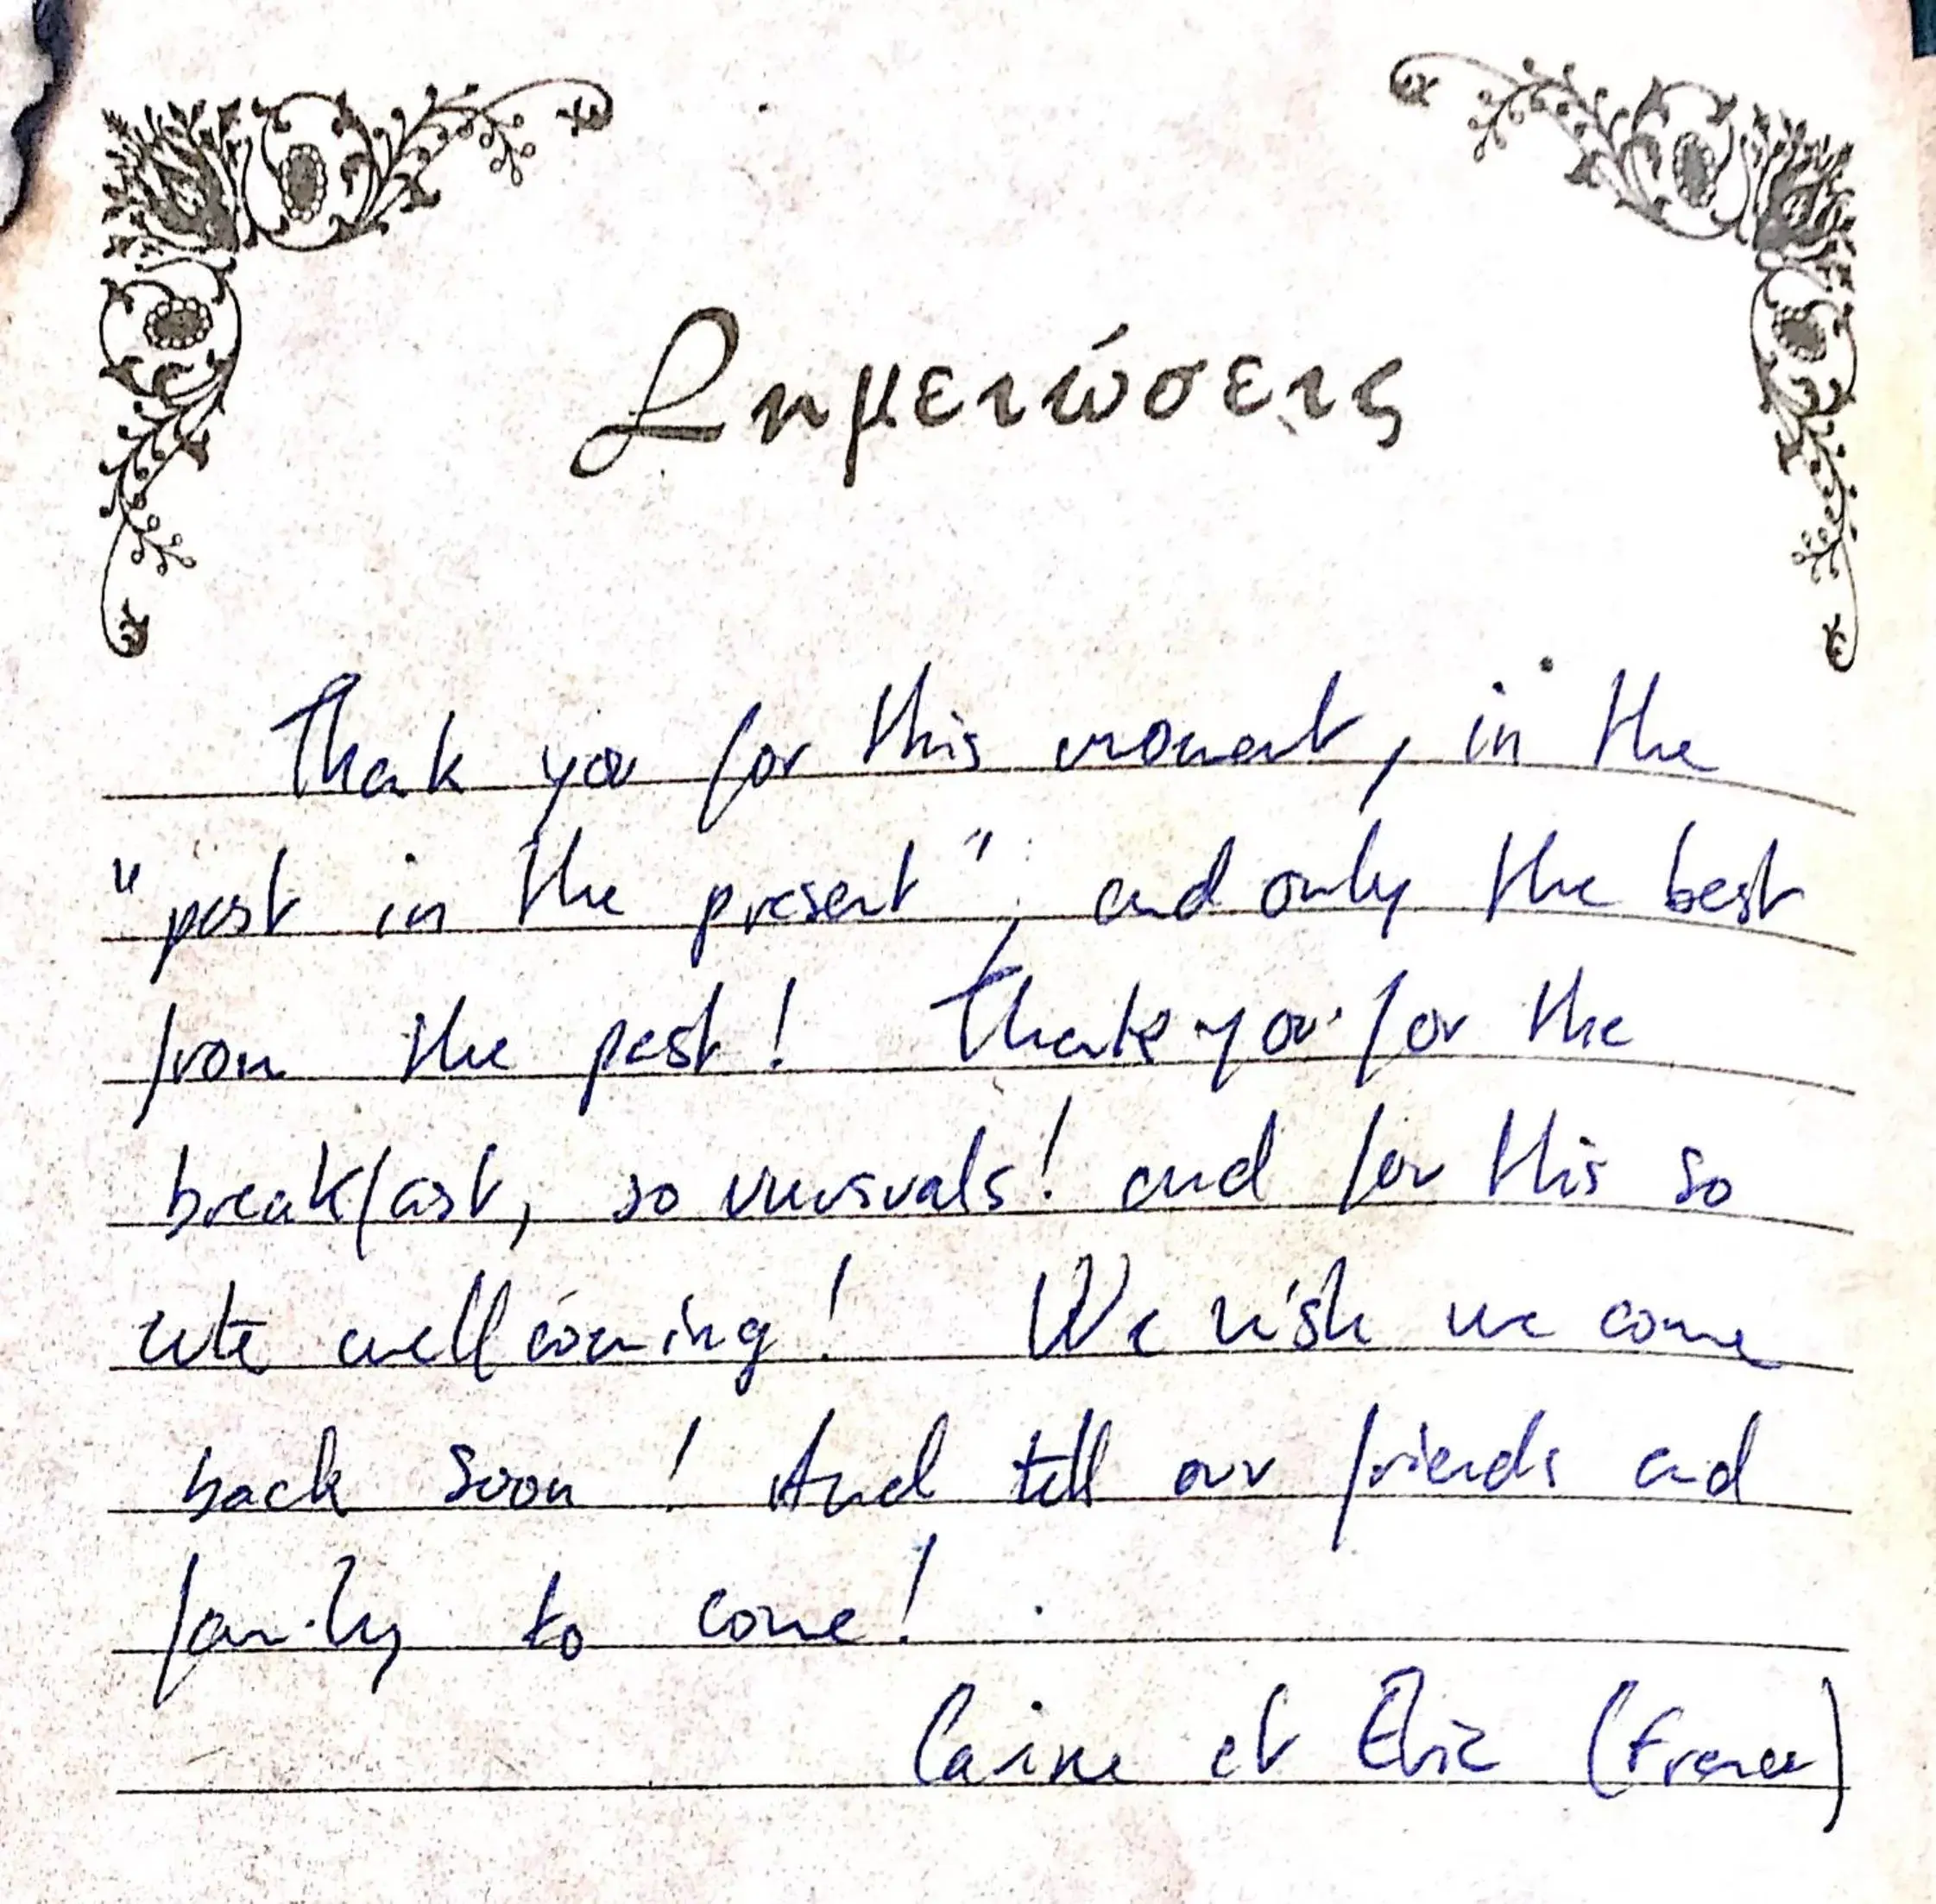 Σημειώσεις
Thank you for this moment, in the
"past in the present", and only the best
from the past! Thank you for the
breakfast, so unusuals! and for this so
cute wellcoming! We wish we come
back soon! And tell our friends and
family to come!
et (France)